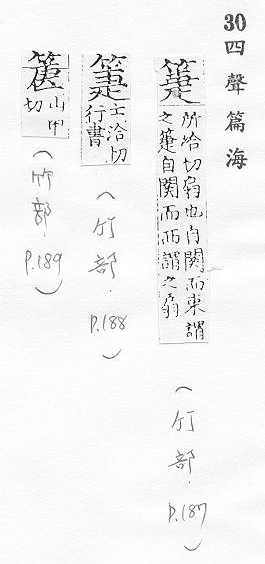 30 四聲篇海
箑
所洽切扇也自関而東謂
之箑自関而西謂之扇
(竹部. P.187)
士洽切
行書
(竹部. P.188)
山甲
切
(竹部. P.189)